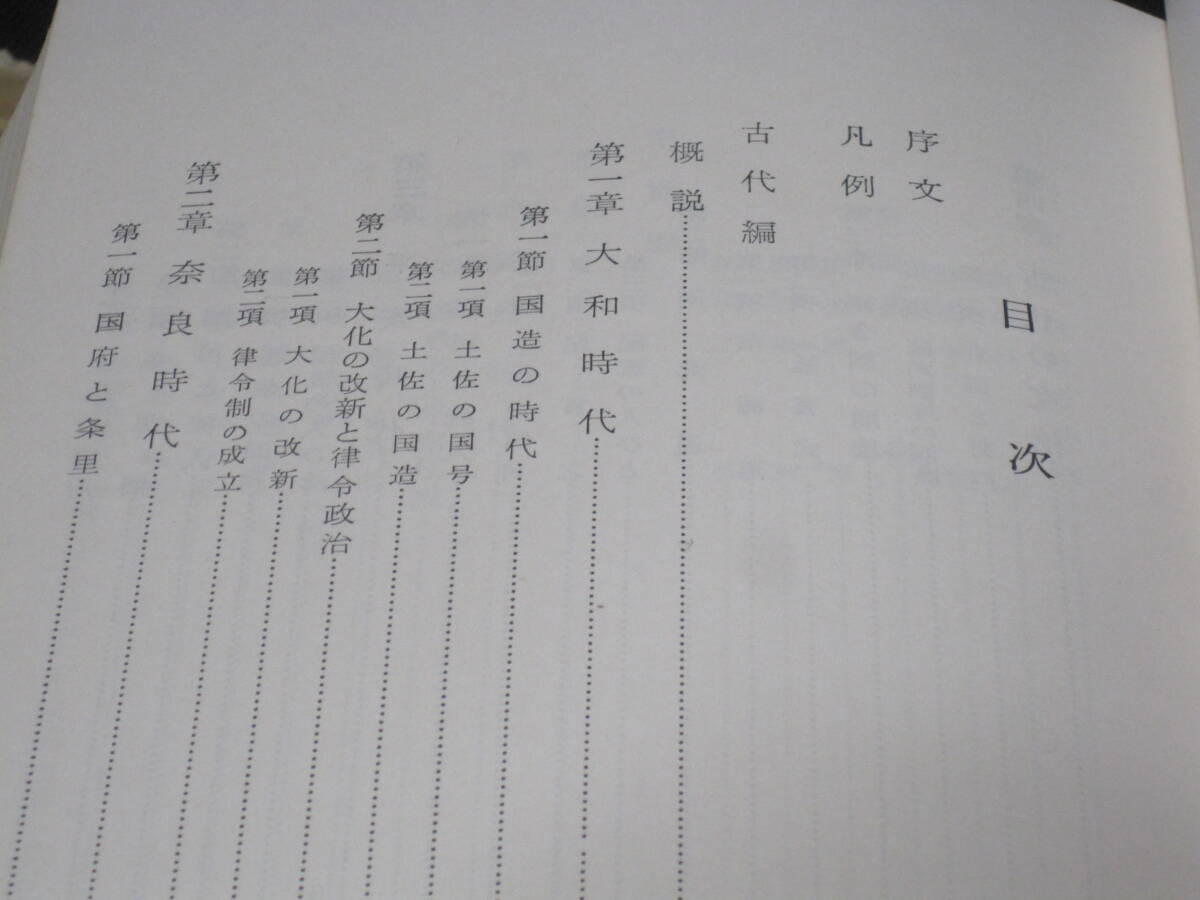 目次
序文
凡例
古代編
概説
第一章 大和時代
第一節 国造の時代
第一項 土佐の国号
第二項 土佐の国造
第二節 大化の改新と律令政治
第一項 大化の改新
第二項 律令制の成立
第二章 奈良時代
第一節 国府と条里